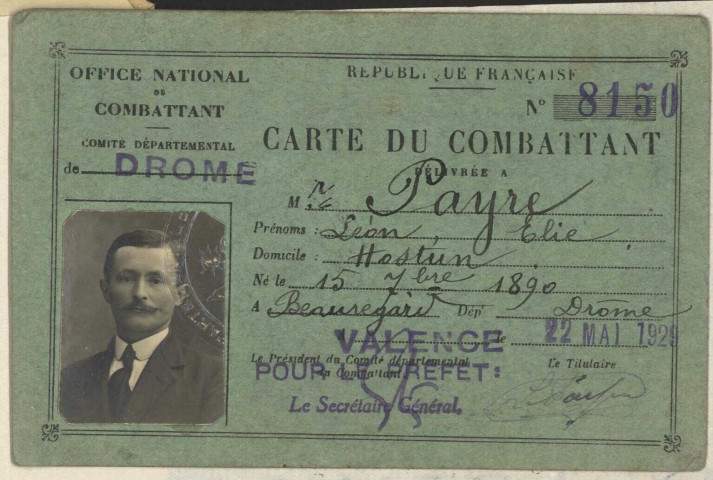 OFFICE NATIONAL
DU
COMBATTANT
COMITÉ DÉPARTEMENTAL
de DROME
RÉPUBLIQUE FRANÇAISE
N° 8150
CARTE DU COMBATTANT
DÉLIVRÉE A
M Payre
Prénoms : Léon, Elie
Domicile : Hostun
Né le 15 7bre 1890
A Beauregard Dép' Drôme
VALENCE le 22 MAI 1929
Le Président du Comité départemental
du Combattant
Le Titulaire
POUR LE PREFET:
Le Secrétaire Général,